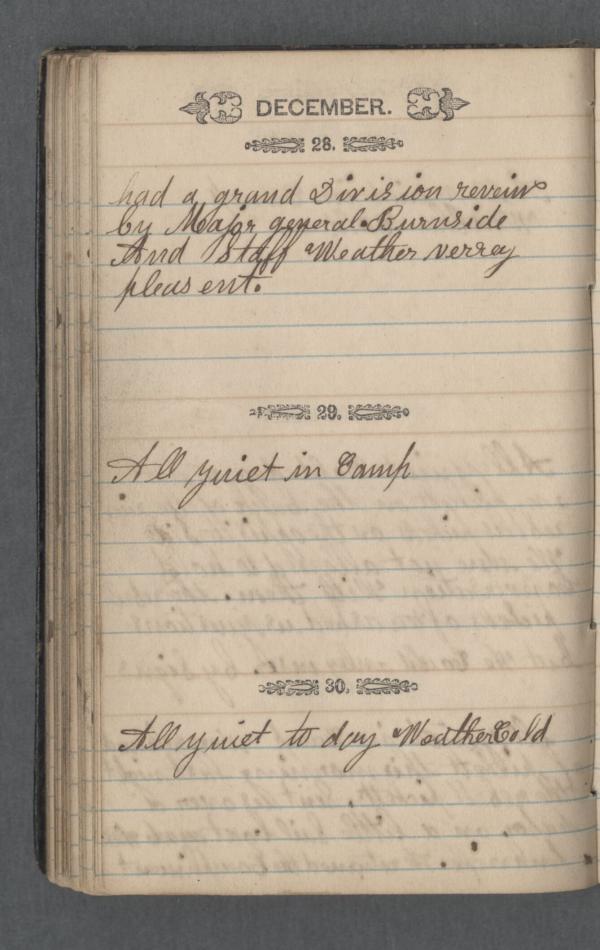 DECEMBER.
28.
had a grand Division reveiw
by Major general Burnside
And Staff Weather verrey
pleasent.
29.
All quiet in Camp
30.
All quiet to day Weather Cold